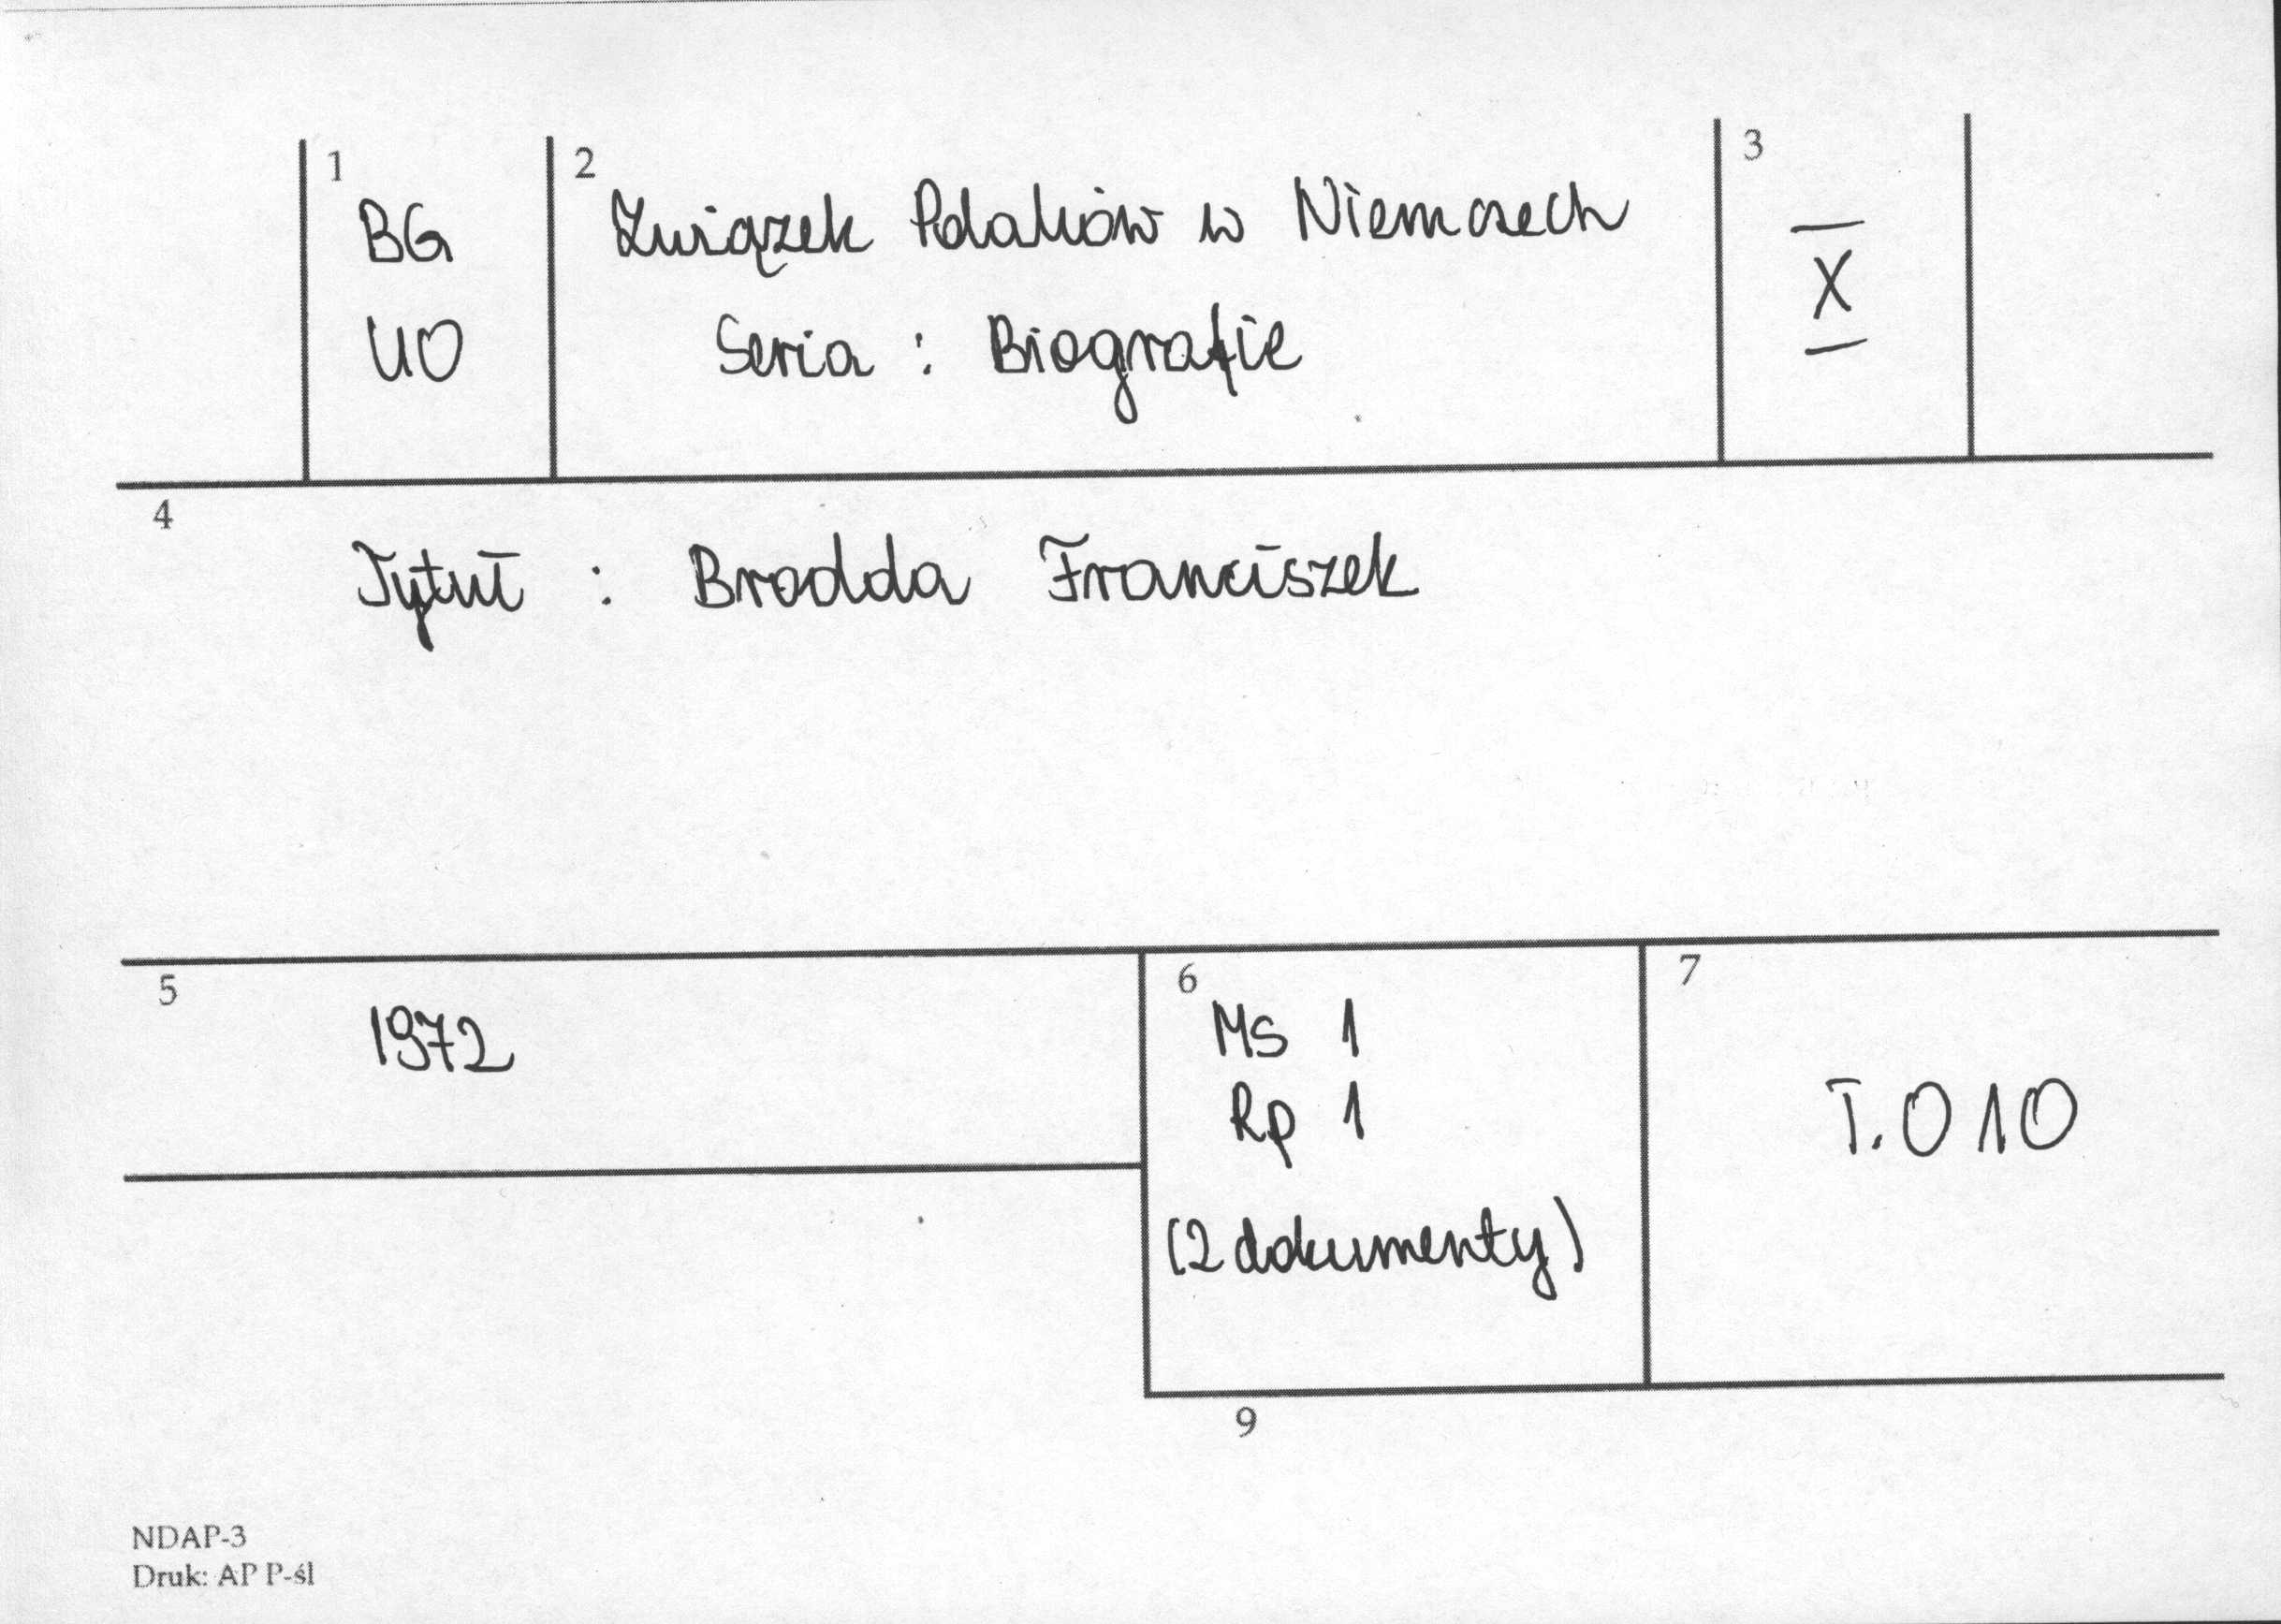 1
BG
UO
2
Związek Polaków w Niemczech
Seria : Biografie
3
X
4
Tytuł : Brodda Franciszek
5
1972
6
Ms 1
Rp 1
(2 dokumenty)
7
T. 010
9
NDAP-3
Druk: AP P-śl